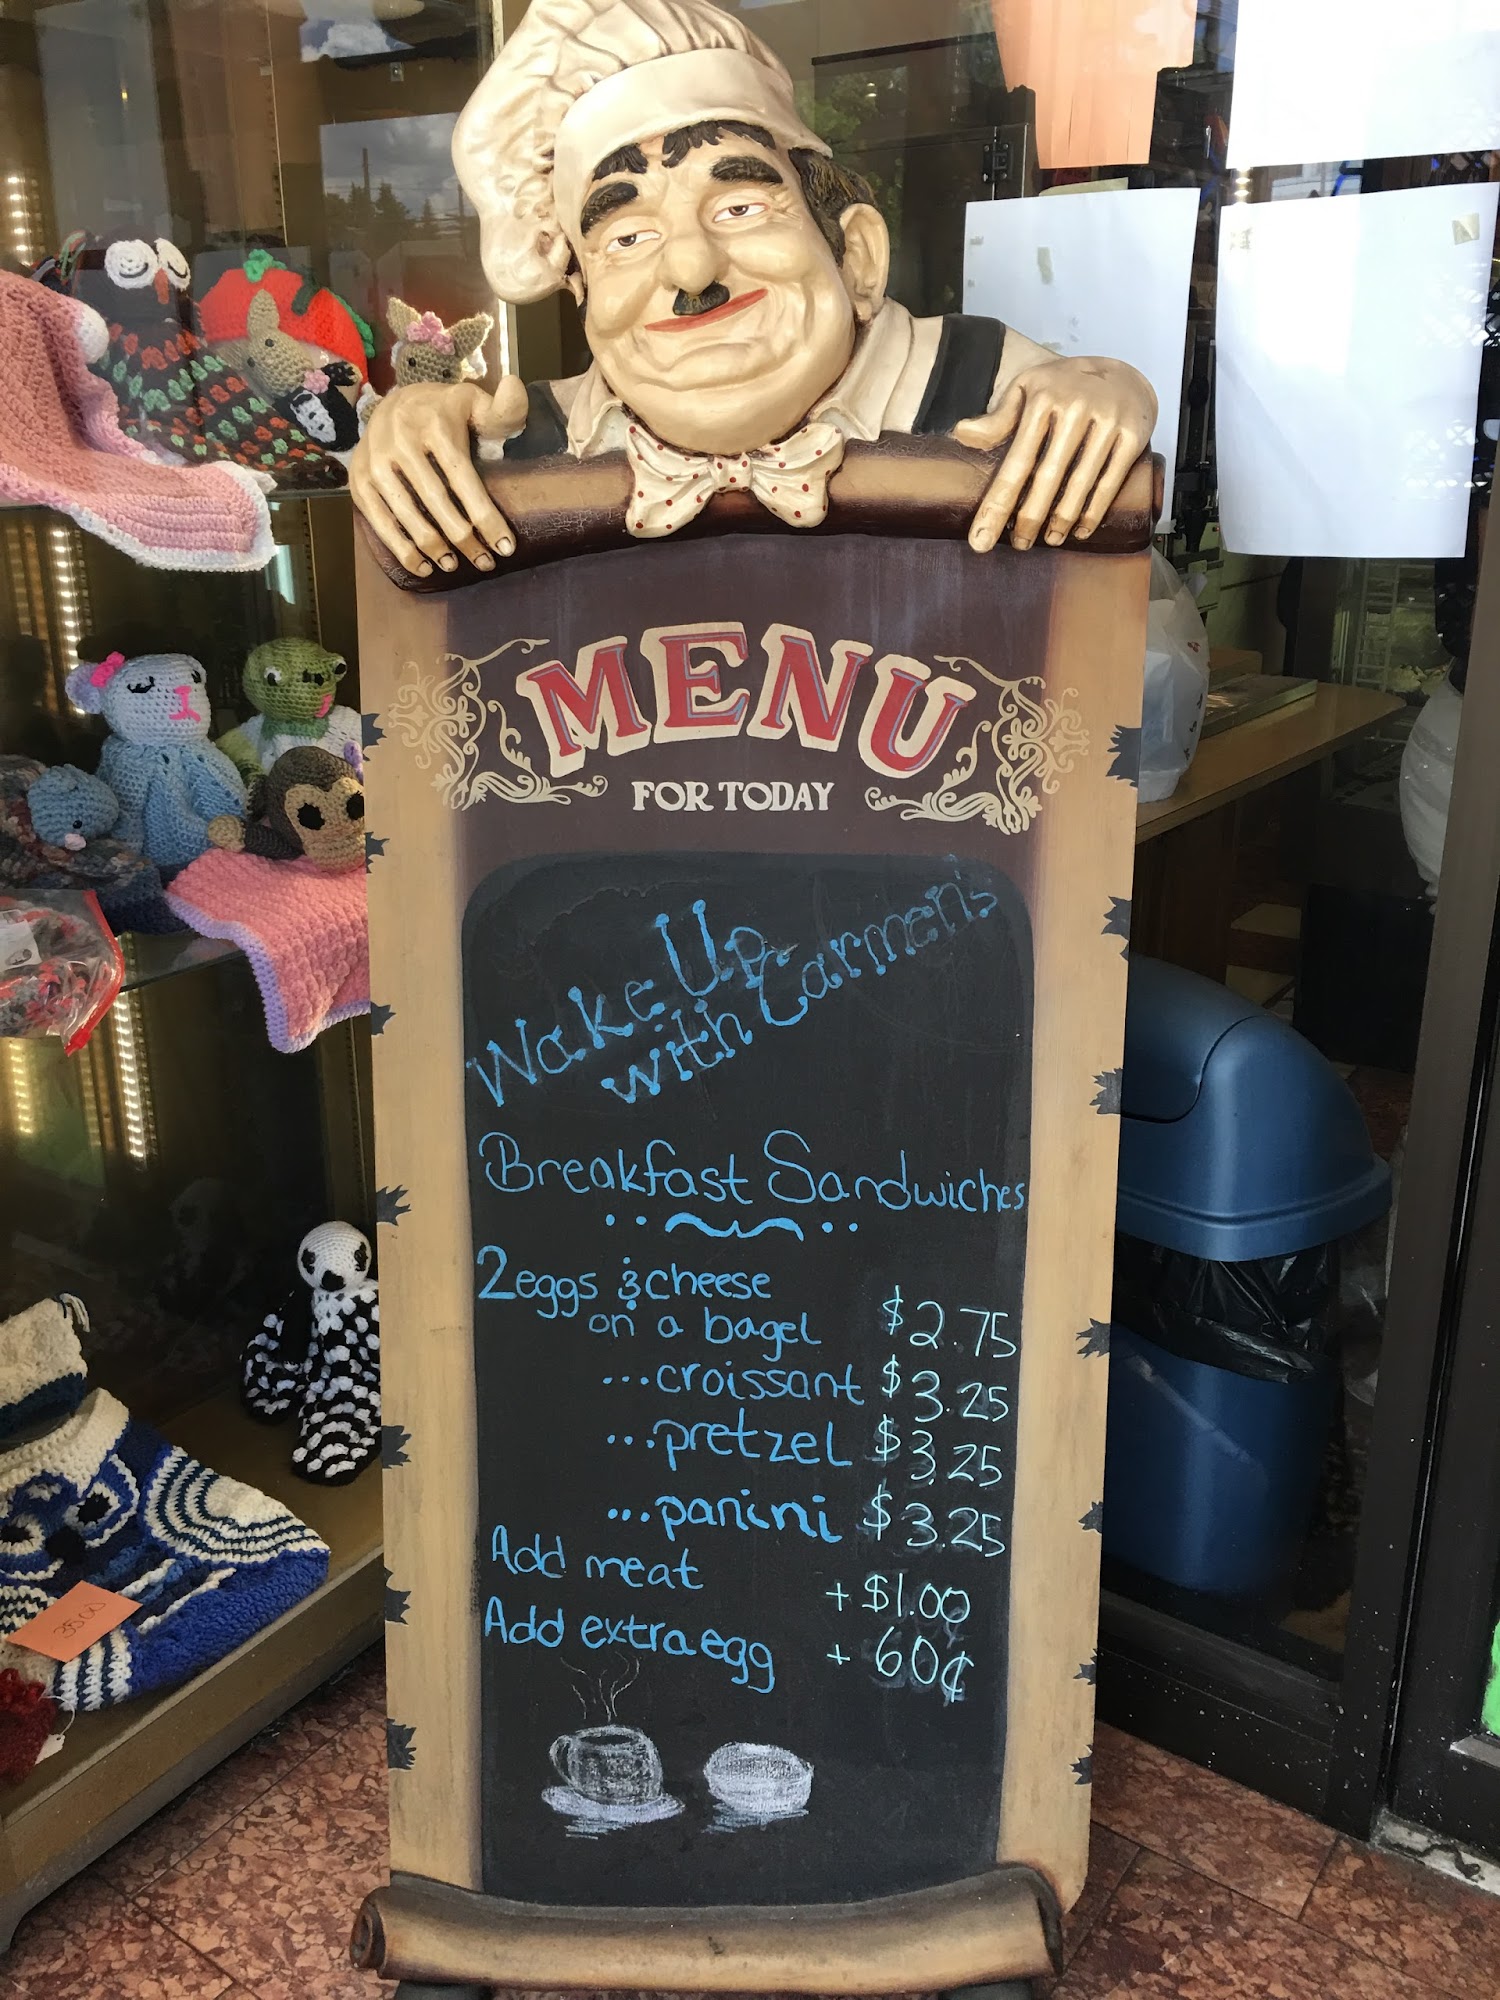 MENU
FOR TODAY
Wake Up
with Carmen's
Breakfast Sandwiches
2 eggs & cheese
on a bagel $2.75
...croissant $3.25
...pretzel $3.25
...panini $3.25
Add meat + $1.00
Add extra egg + 60¢
3500